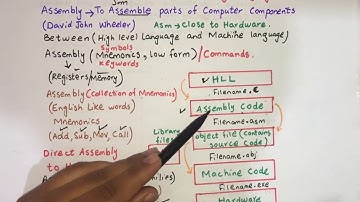 Assembly → To Assemble parts of Computer Components
(David John Wheeler) Asm → Close to Hardware.
Between (High level Language and Machine language)
Symbols
Assembly (Mnemonics, low form) / Commands.
Keywords
→ (Registers/Memory)
Assembly (Collection of Mnemonics)
(English Like words)
Mnemonics
(Add, Sub, Mov, Call)
Direct Assembly
to
Library
files
HLL
Filename.c
Assembly Code
Filename.asm
object file (Contains
Source Code)
Filename.obj
Machine Code
Filename.exe
Hardware